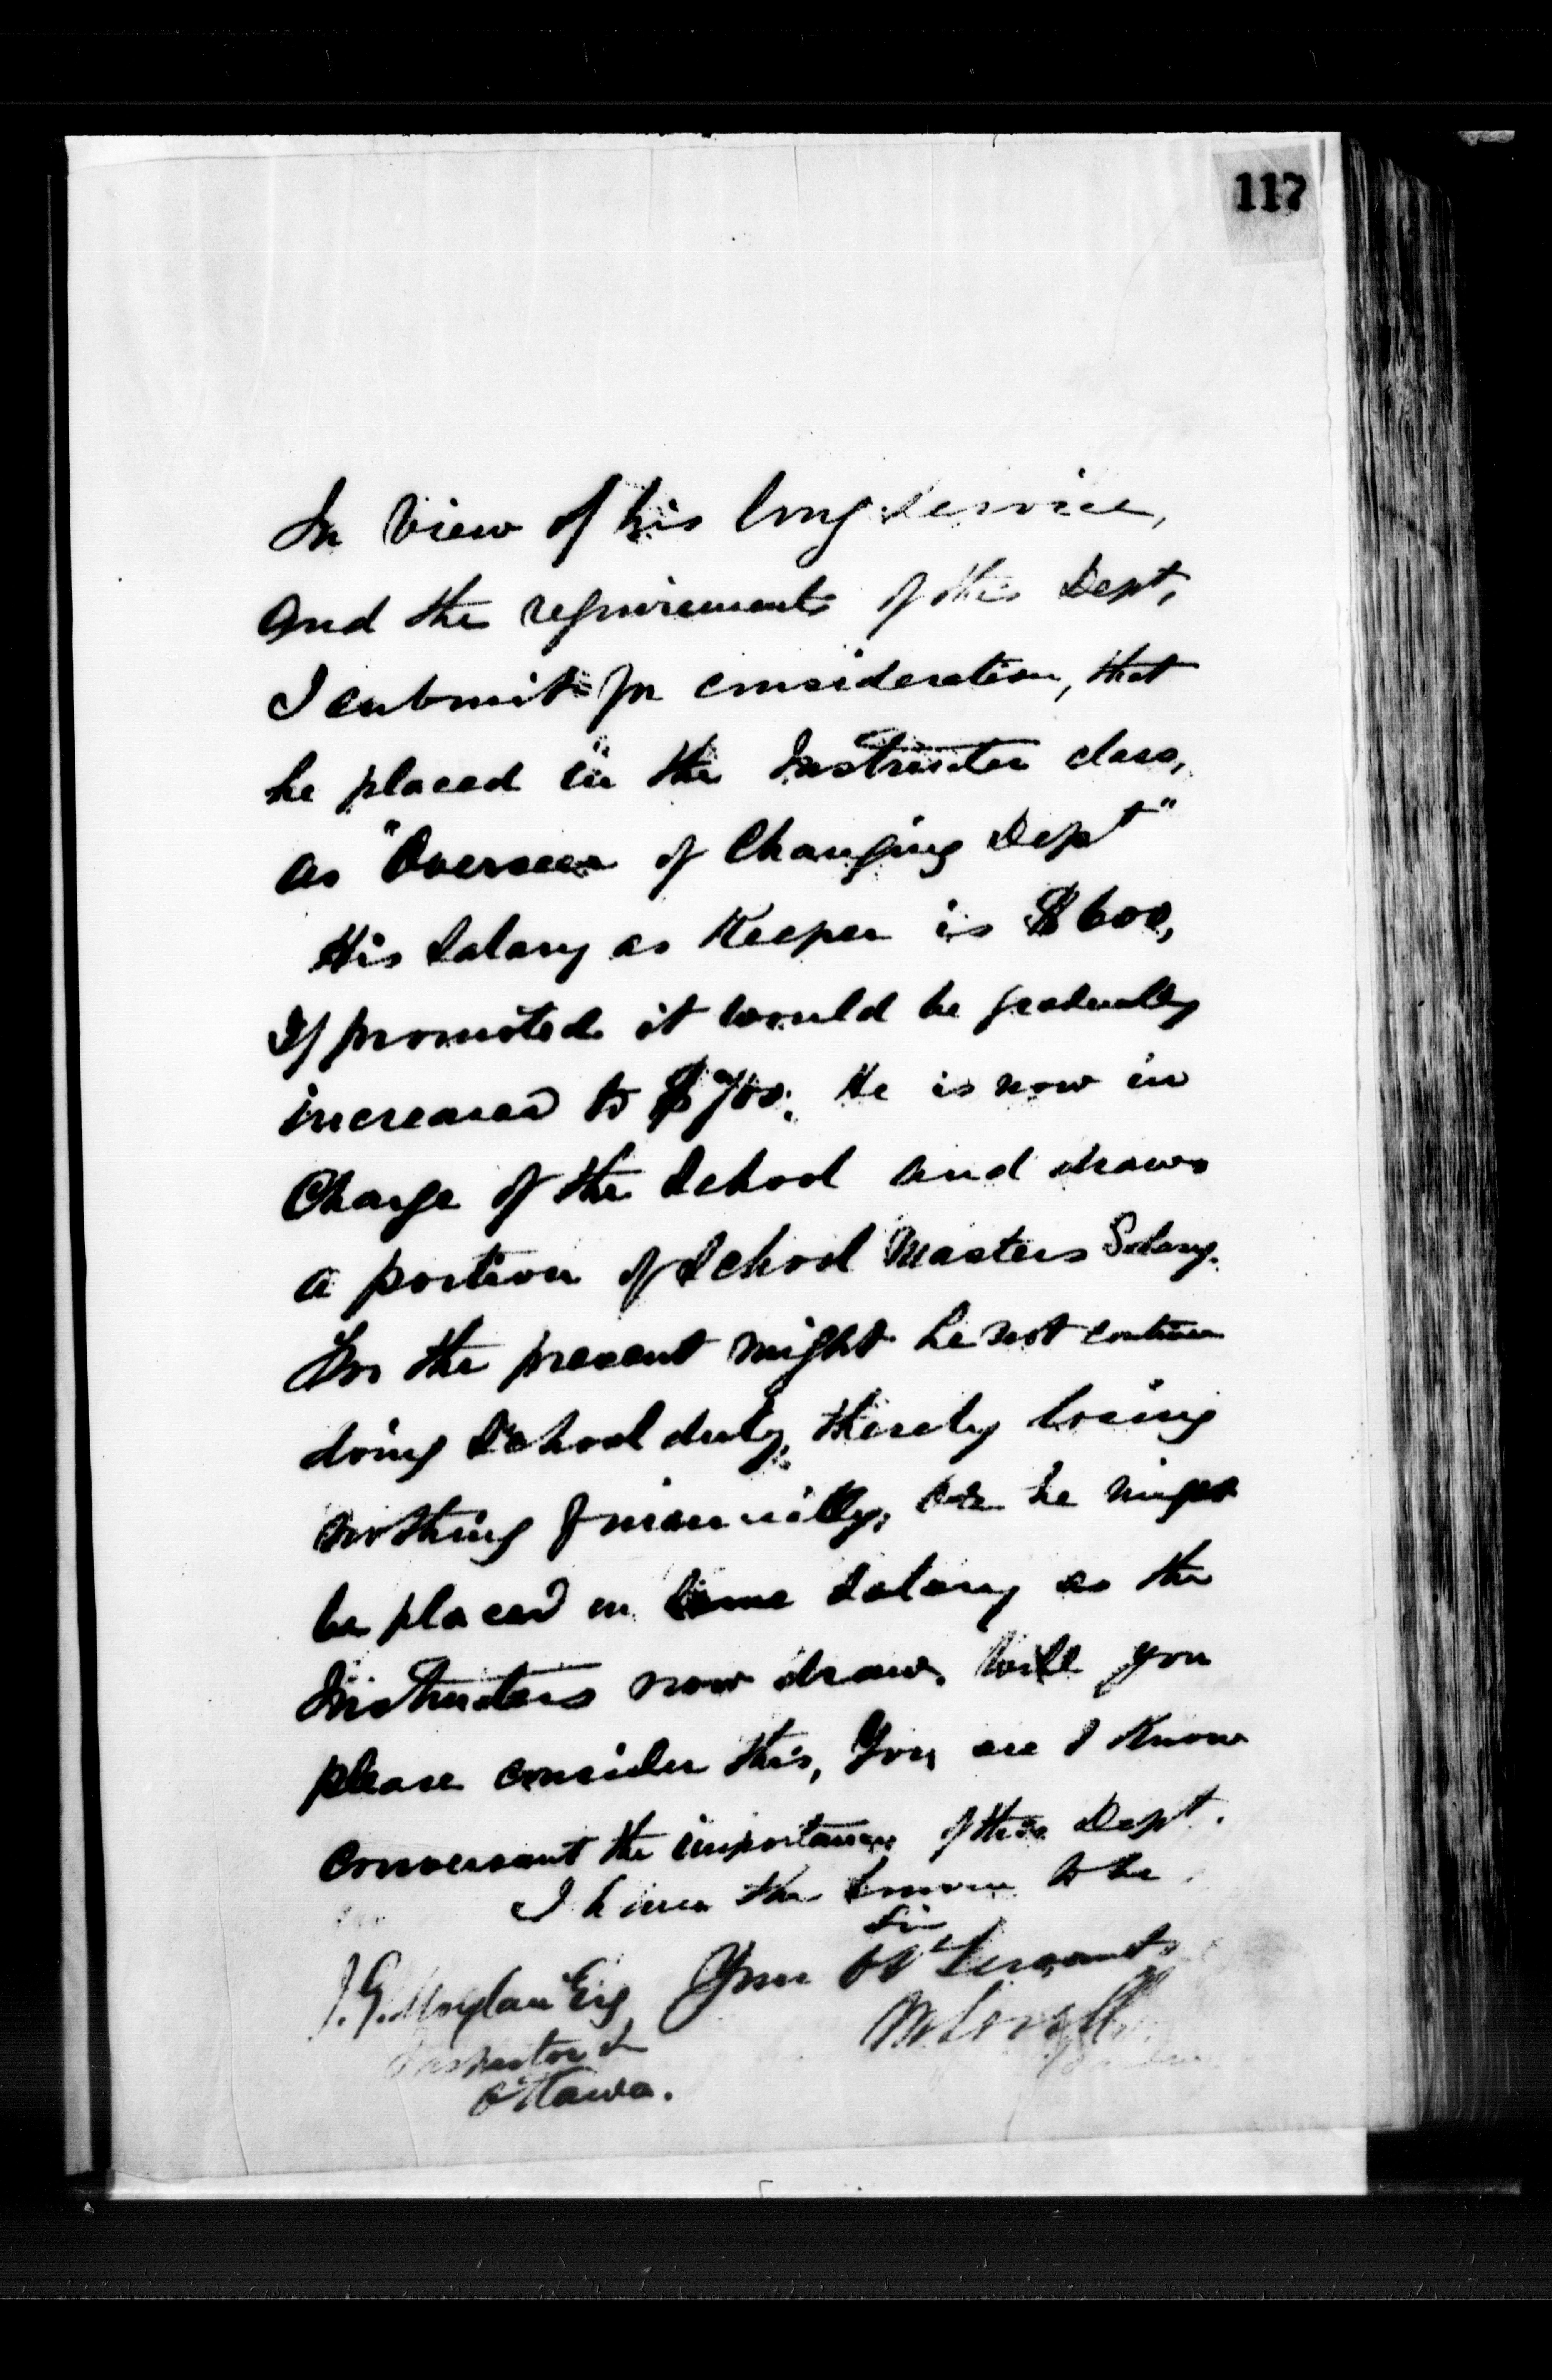 117
In view of his long service,
and the requirements of this Dept,
I submit for consideration, that
he placed in the Instructor class,
as "Overseer of Changing Dept"
His Salary as Keeper is $600,
If promoted it would be gradually
increased to $700. He is now in
Charge of the School and draws
a portion of School Masters Salary.
For the present might he not continue
doing School duty, thereby losing
nothing financially, or he might
be placed on same salary as the
Instructors now draw. Will you
please consider this, You are I know
conversant the importance of this Dept.
I have the honor to be
Sir
J. G. Moylan Esq Your Obt Servant
Inspector &
Ottawa.